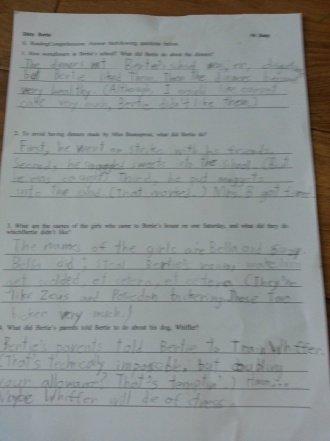 Dirty Bertie
II. Reading Comprehension: Answer the following questions below.
1. How were dinners in Bertie's school? What did Bertie do about the dinners?
The dinners at Bertie's school was, er, disgusting
but Bertie liked them. Then the dinners became
very healthy. (Although, I would like carrot
cake very much, Bertie didn't like them.)
2. To avoid having dinners made by Miss Beansprout, what did Bertie do?
First, he went on strike with his friends.
Second, he smuggled sweets into the school. (But
he was caught) Third, he put maggots
into the salad. (That worked.) Miss B got fired
3. What are the names of the girls who came to Bertie's house on one Saturday, and what did they do
which Bertie didn't like?
The names of the girls are Bella and
Bella did
get et cetera, et cetera. (They're
like Zeus and Poseidon bickering. These two
bicker very much.)
4. What did Bertie's parents told Bertie to do about his dog, Whiffer?
Bertie's parents told Bertie to Train Whiffer.
(That's technically impossible, but doubling
your allowance? That's temptin'.) Hmm...
Maybe Whiffer will die of stress.